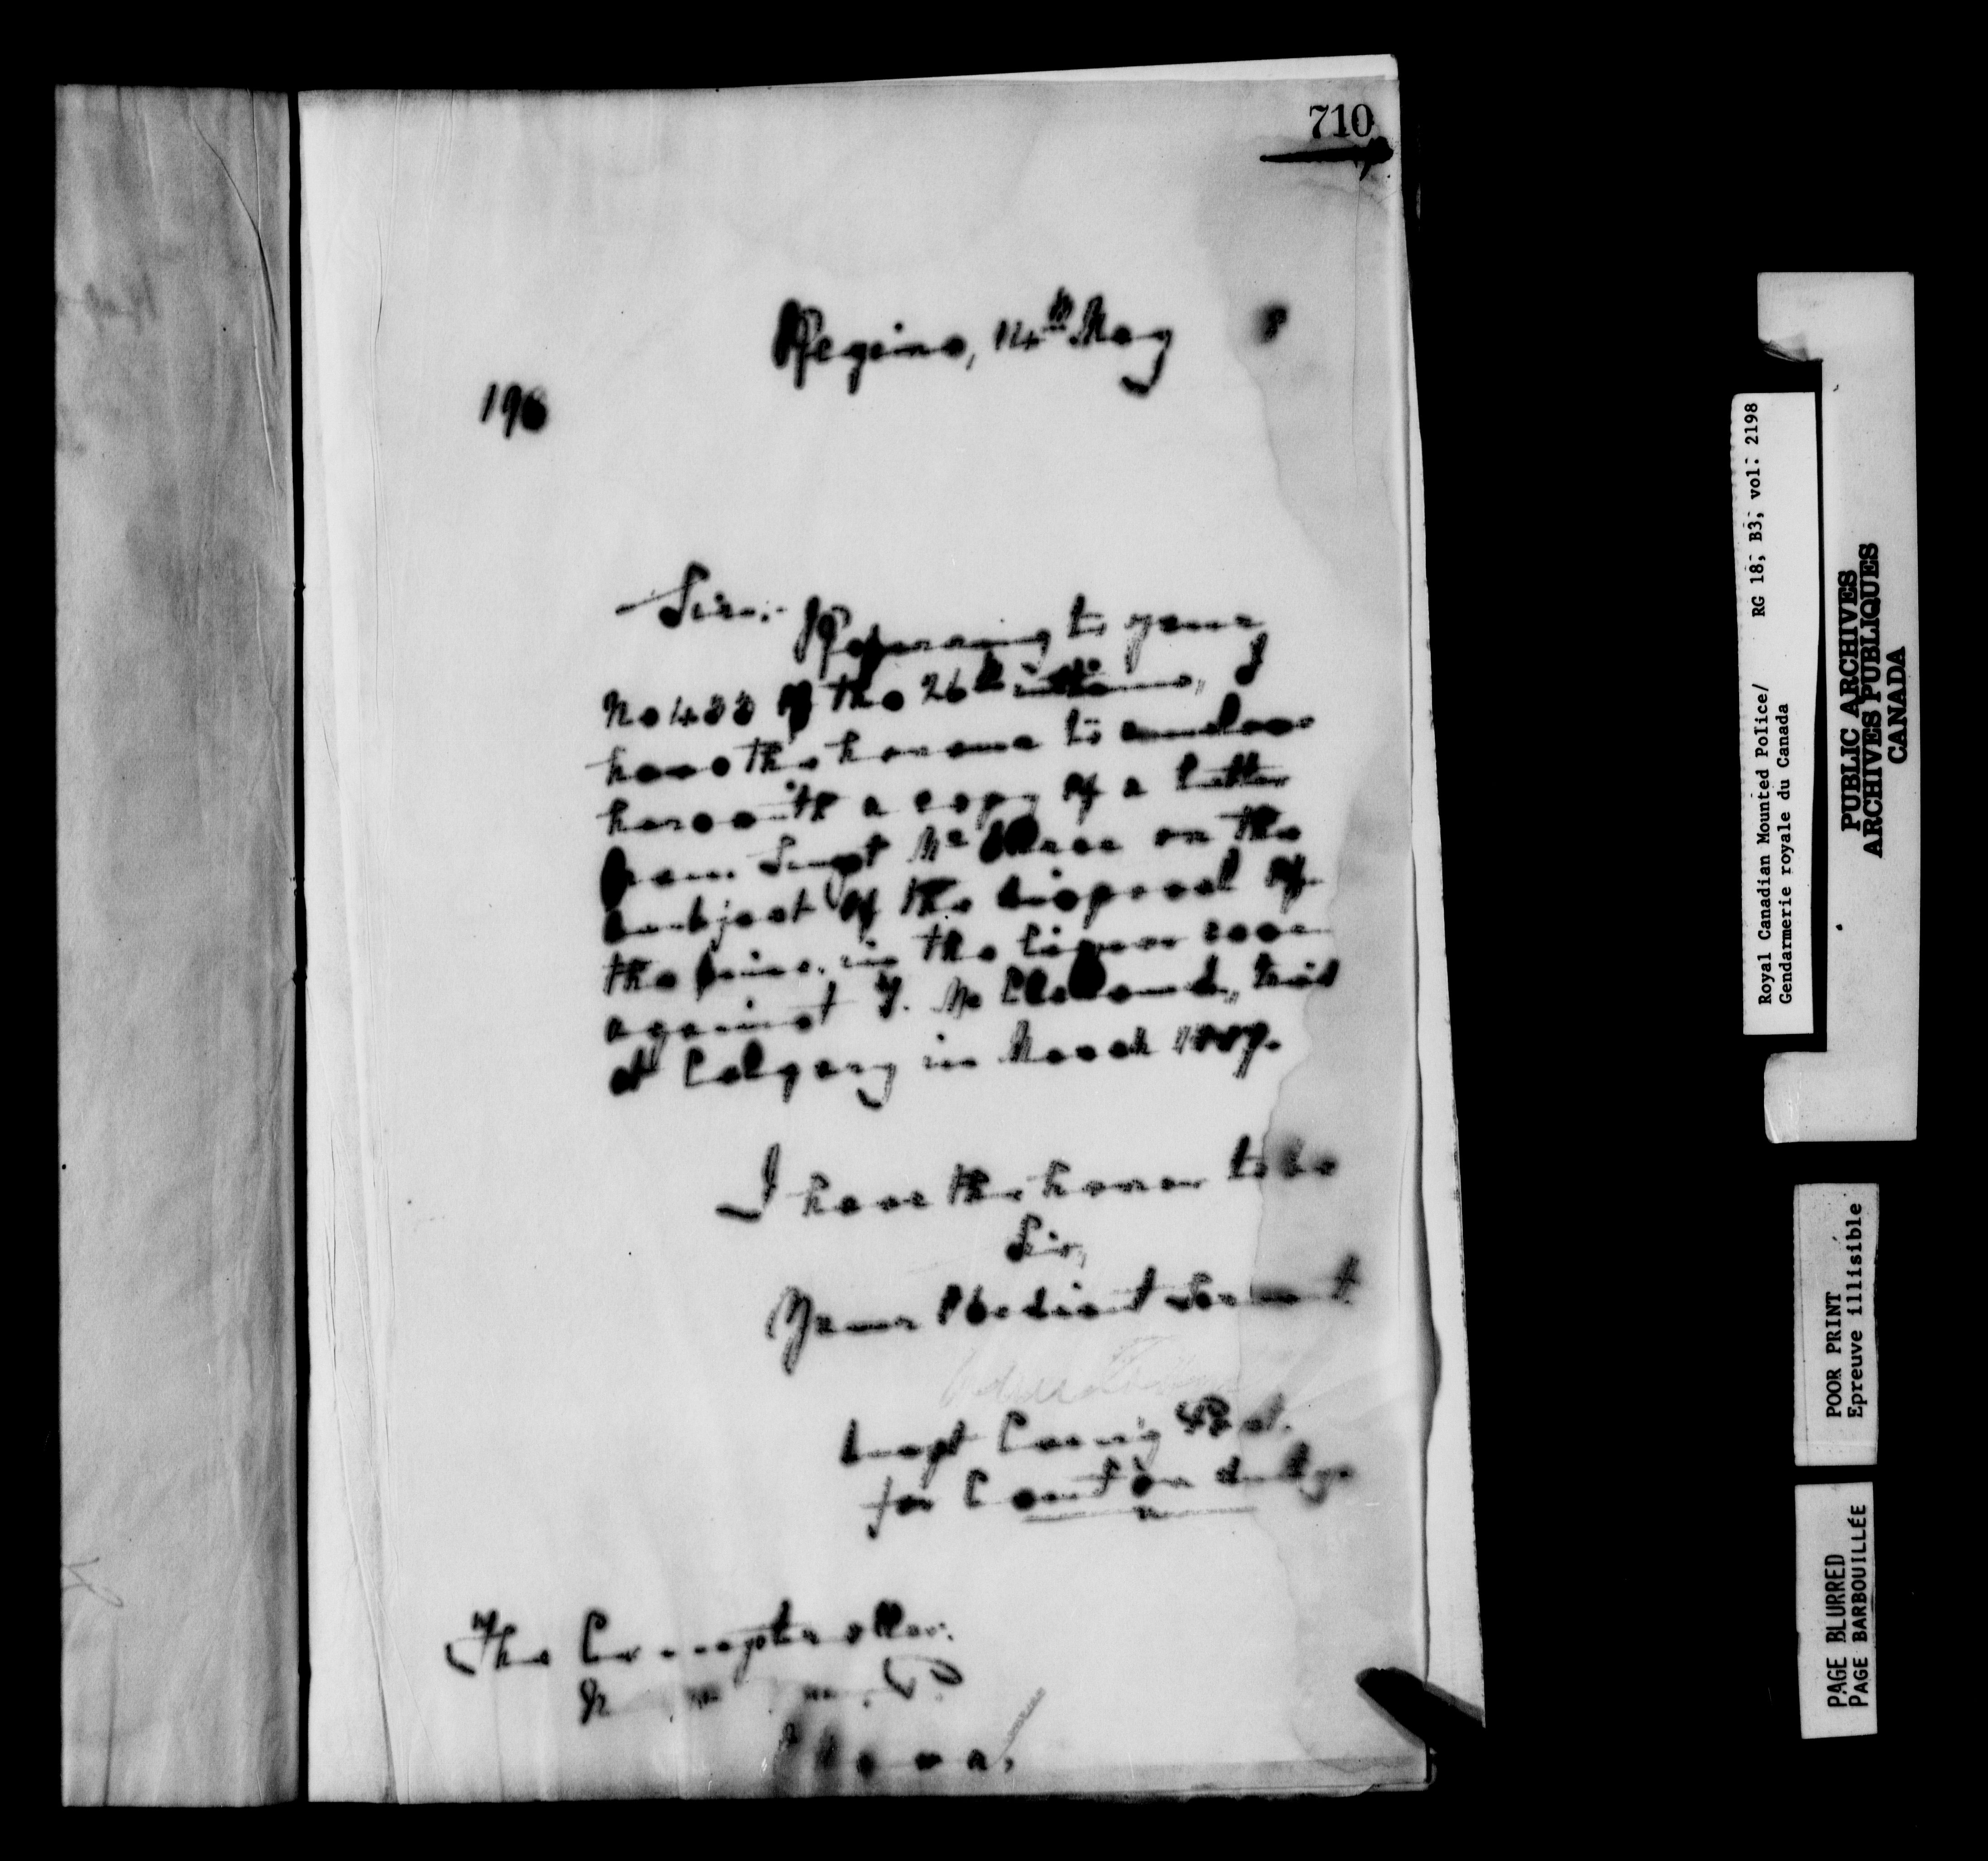 710
Regina, 14th May 8
196
Sir:-
Referring to your
No 433 of the 26th ultimo, I
have the honour to enclose
herewith a copy of a letter
from Supt on the
subject of the disposal of
the fine in the liquor case
against tried
at Calgary in March 1887.
I have the honor to be
Sir,
Your Obedient Servant
Supt Comg
for Comr on duty
The Comptroller
Ottawa.
Royal Canadian Mounted Police/ RG 18, B3, vol: 2198
Gendarmerie royale du Canada
PUBLIC ARCHIVES
ARCHIVES PUBLIQUES
CANADA
POOR PRINT
Epreuve illisible
PAGE BLURRED
PAGE BARBOUILLÉE